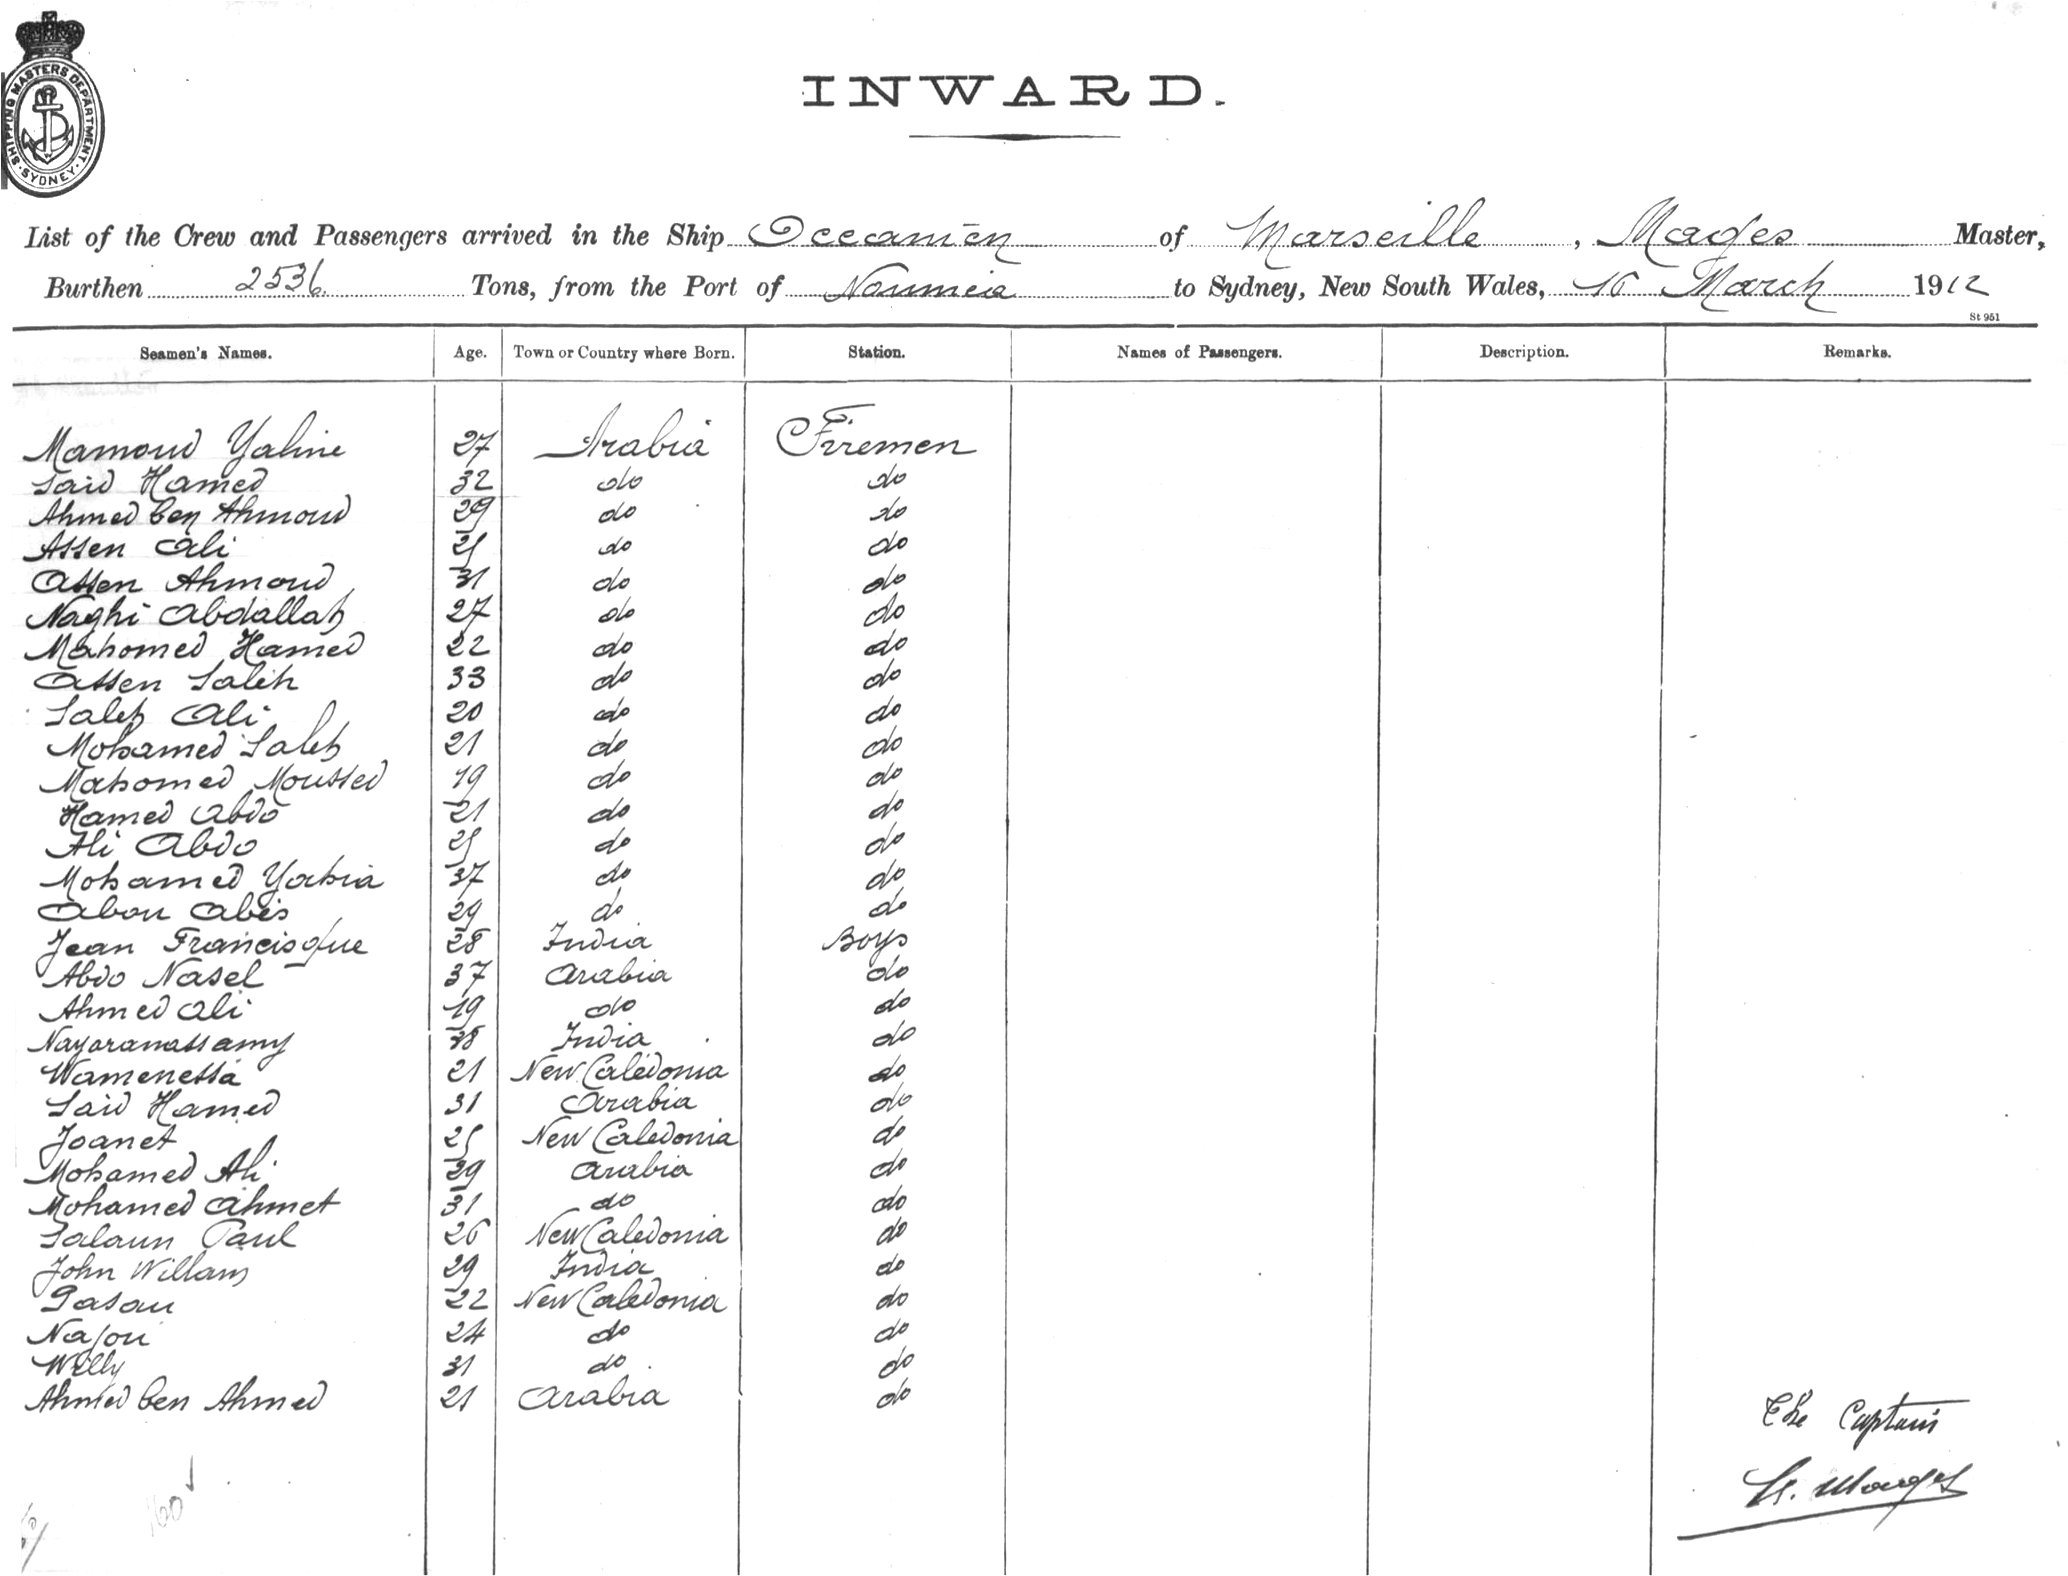 SHIPPING MASTERS DEPARTMENT · SYDNEY ·
INWARD.
List of the Crew and Passengers arrived in the Ship Oceanien of Marseille, Mages Master,
Burthen 2536 Tons, from the Port of Noumea to Sydney, New South Wales, 16 March 1912
St 951
Seamen's Names. Age. Town or Country where Born. Station. Names of Passengers. Description. Remarks.
Mamoud Yahine 27 Arabia Firemen
Said Hamed 32 do do
Ahmed ben Ahmoud 29 do do
Assen Ali 25 do do
Assen Ahmoud 31 do do
Naghi Abdallah 27 do do
Mahomed Hamed 22 do do
Assen Saleh 33 do do
Saleh Ali 20 do do
Mohamed Saleh 21 do do
Mahomed Moussed 19 do do
Hamed Abdo 21 do do
Ali Abdo 25 do do
Mohamed Yahia 37 do do
Abou Abes 29 do do
Jean Francisque 28 India Boys
Abdo Nasel 37 Arabia do
Ahmed Ali 19 do do
Nayaranassamy 28 India do
Wamenessa 21 New Caledonia do
Said Hamed 31 Arabia do
Joanet 25 New Caledonia do
Mohamed Ali 29 Arabia do
Mohamed Ahmet 31 do do
Salaun Paul 26 New Caledonia do
John Willams 29 India do
Gasau 22 New Caledonia do
Najou 24 do do
Willy 31 do do
Ahmed ben Ahmed 21 Arabia do
The Captain
Mages
160